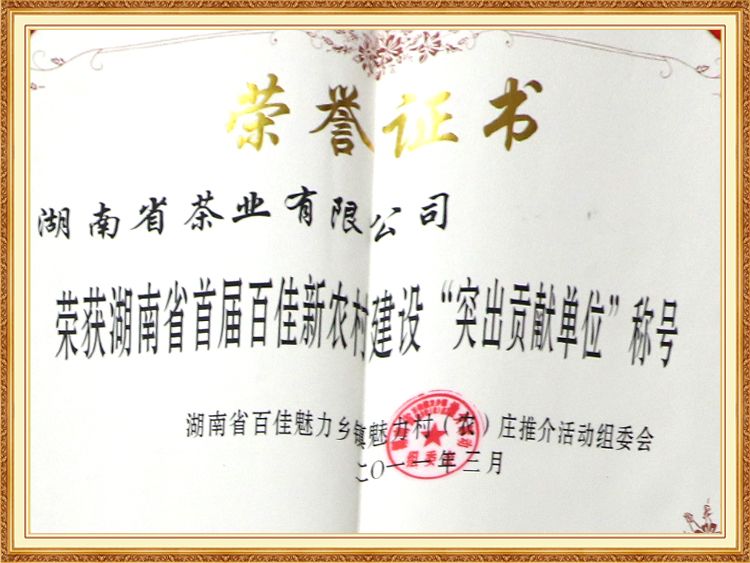 荣誉证书
湖南省茶业有限公司
荣获湖南省首届百佳新农村建设“突出贡献单位”称号
湖南省百佳魅力乡镇魅力村（农）庄推介活动组委会
二〇一一年三月
组委会